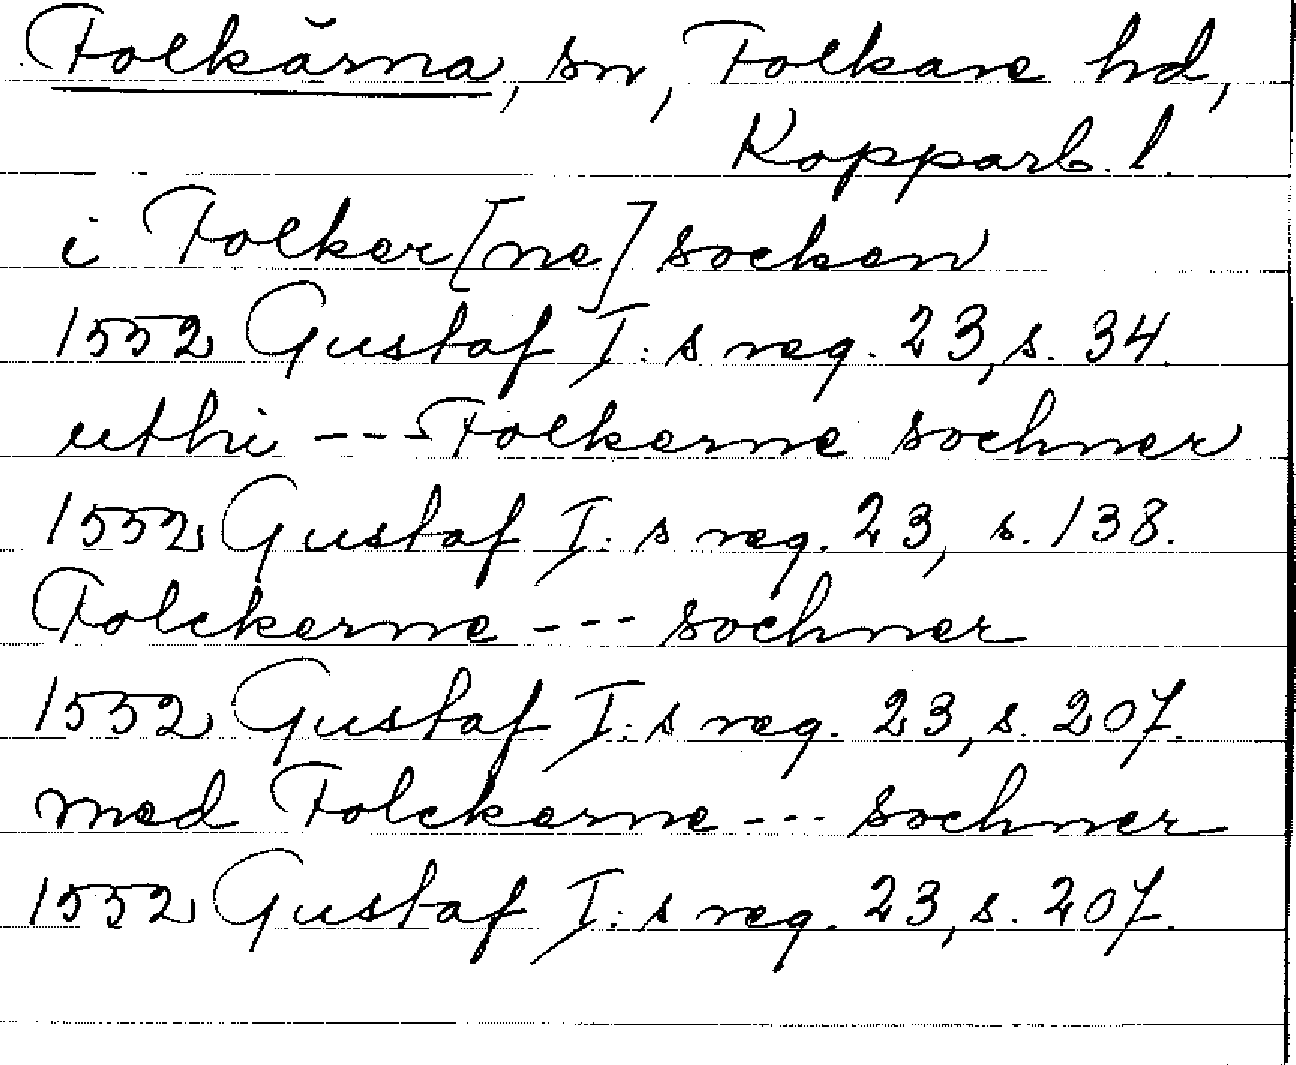 Folkärna, sn, Folkare hd,
Kopparb. l.
i Folker[ne] socken
1552 Gustaf I:s reg. 23, s. 34.
uthi --- Folkerne sochner
1552 Gustaf I:s reg. 23, s. 138.
Folckerne --- sochner
1552 Gustaf I:s reg. 23, s. 207.
med Folckerne --- sochner
1552 Gustaf I:s reg. 23, s. 207.